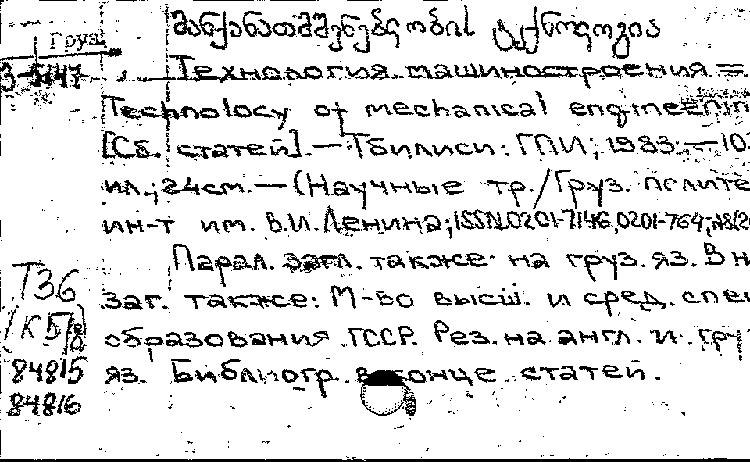 მანქანათმშენებლობის ტექნოლოგია
Груз.
Технология машиностроения =
Technology of mechanical engineerin
[Сб. статей]. — Тбилиси: ГПИ, 1983. — 10
ил.; 24см. — (Научные тр./Груз. полите
ин-т им. В.И.Ленина; ISSN 0201-7146,
Парал. загл. также на груз. яз. В н
Т36
заг. также: М-во высш. и сред. спец
образования ГССР. Рез. на англ. и гру
84815
яз. Библиогр. в конце статей.
84816